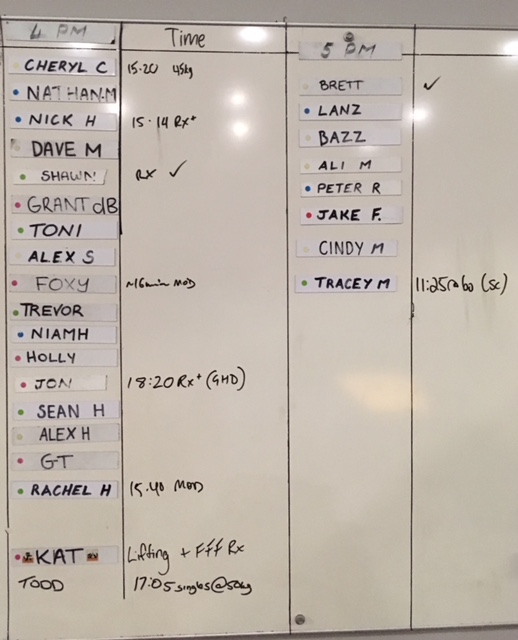 4 PM Time
CHERYL C 15:20 45kg
NATHAN.M
NICK H 15:14 Rx+
DAVE M
SHAWN RX ✓
GRANT dB
TONI
ALEX S
FOXY ~16min MOD
TREVOR
NIAMH
HOLLY
JON 18:20 Rx+ (GHD)
SEAN H
ALEX H
GT
RACHEL H 15.40 MOD
KAT Lifting + Fff Rx
TODD 17:05 singles@50kg
5 PM
BRETT ✓
LANZ
BAZZ
ALI M
PETER R
JAKE F.
CINDY M
TRACEY M 11:25 (sc)